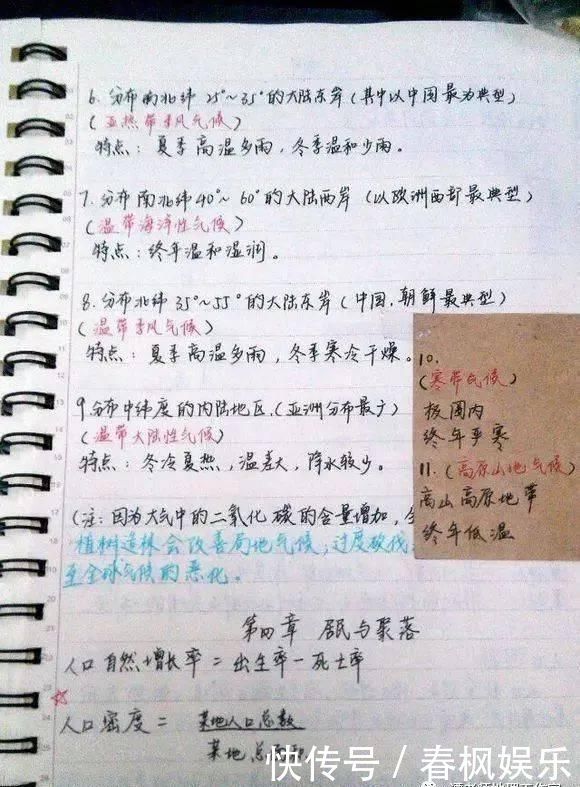 6. 分布南北纬 25°~35°的大陆东岸(其中以中国最为典型)
(亚热带季风气候)
特点：夏季高温多雨，冬季温和少雨。
7. 分布南北纬40°~60°的大陆西岸 (以欧洲西部最典型)
(温带海洋性气候)
特点：终年温和湿润。
8. 分布北纬35°~55°的大陆东岸(中国.朝鲜最典型)
(温带季风气候)
特点：夏季高温多雨，冬季寒冷干燥。
9.分布中纬度的内陆地区.(亚洲分布最广)
(温带大陆性气候)
特点：冬冷夏热，温差大，降水较少。
10.
(寒带气候)
极圈内
终年严寒
11.(高原山地气候)
高山高原地带
终年低温
(注：因为大气中的二氧化碳的含量增加，
植树造林会改善局地气候，过度砍伐
至全球气候的恶化。
第四章 居民与聚落
人口自然增长率=出生率-死亡率
☆
人口密度= 某地人口总数
某地总
快传号/春枫娱乐